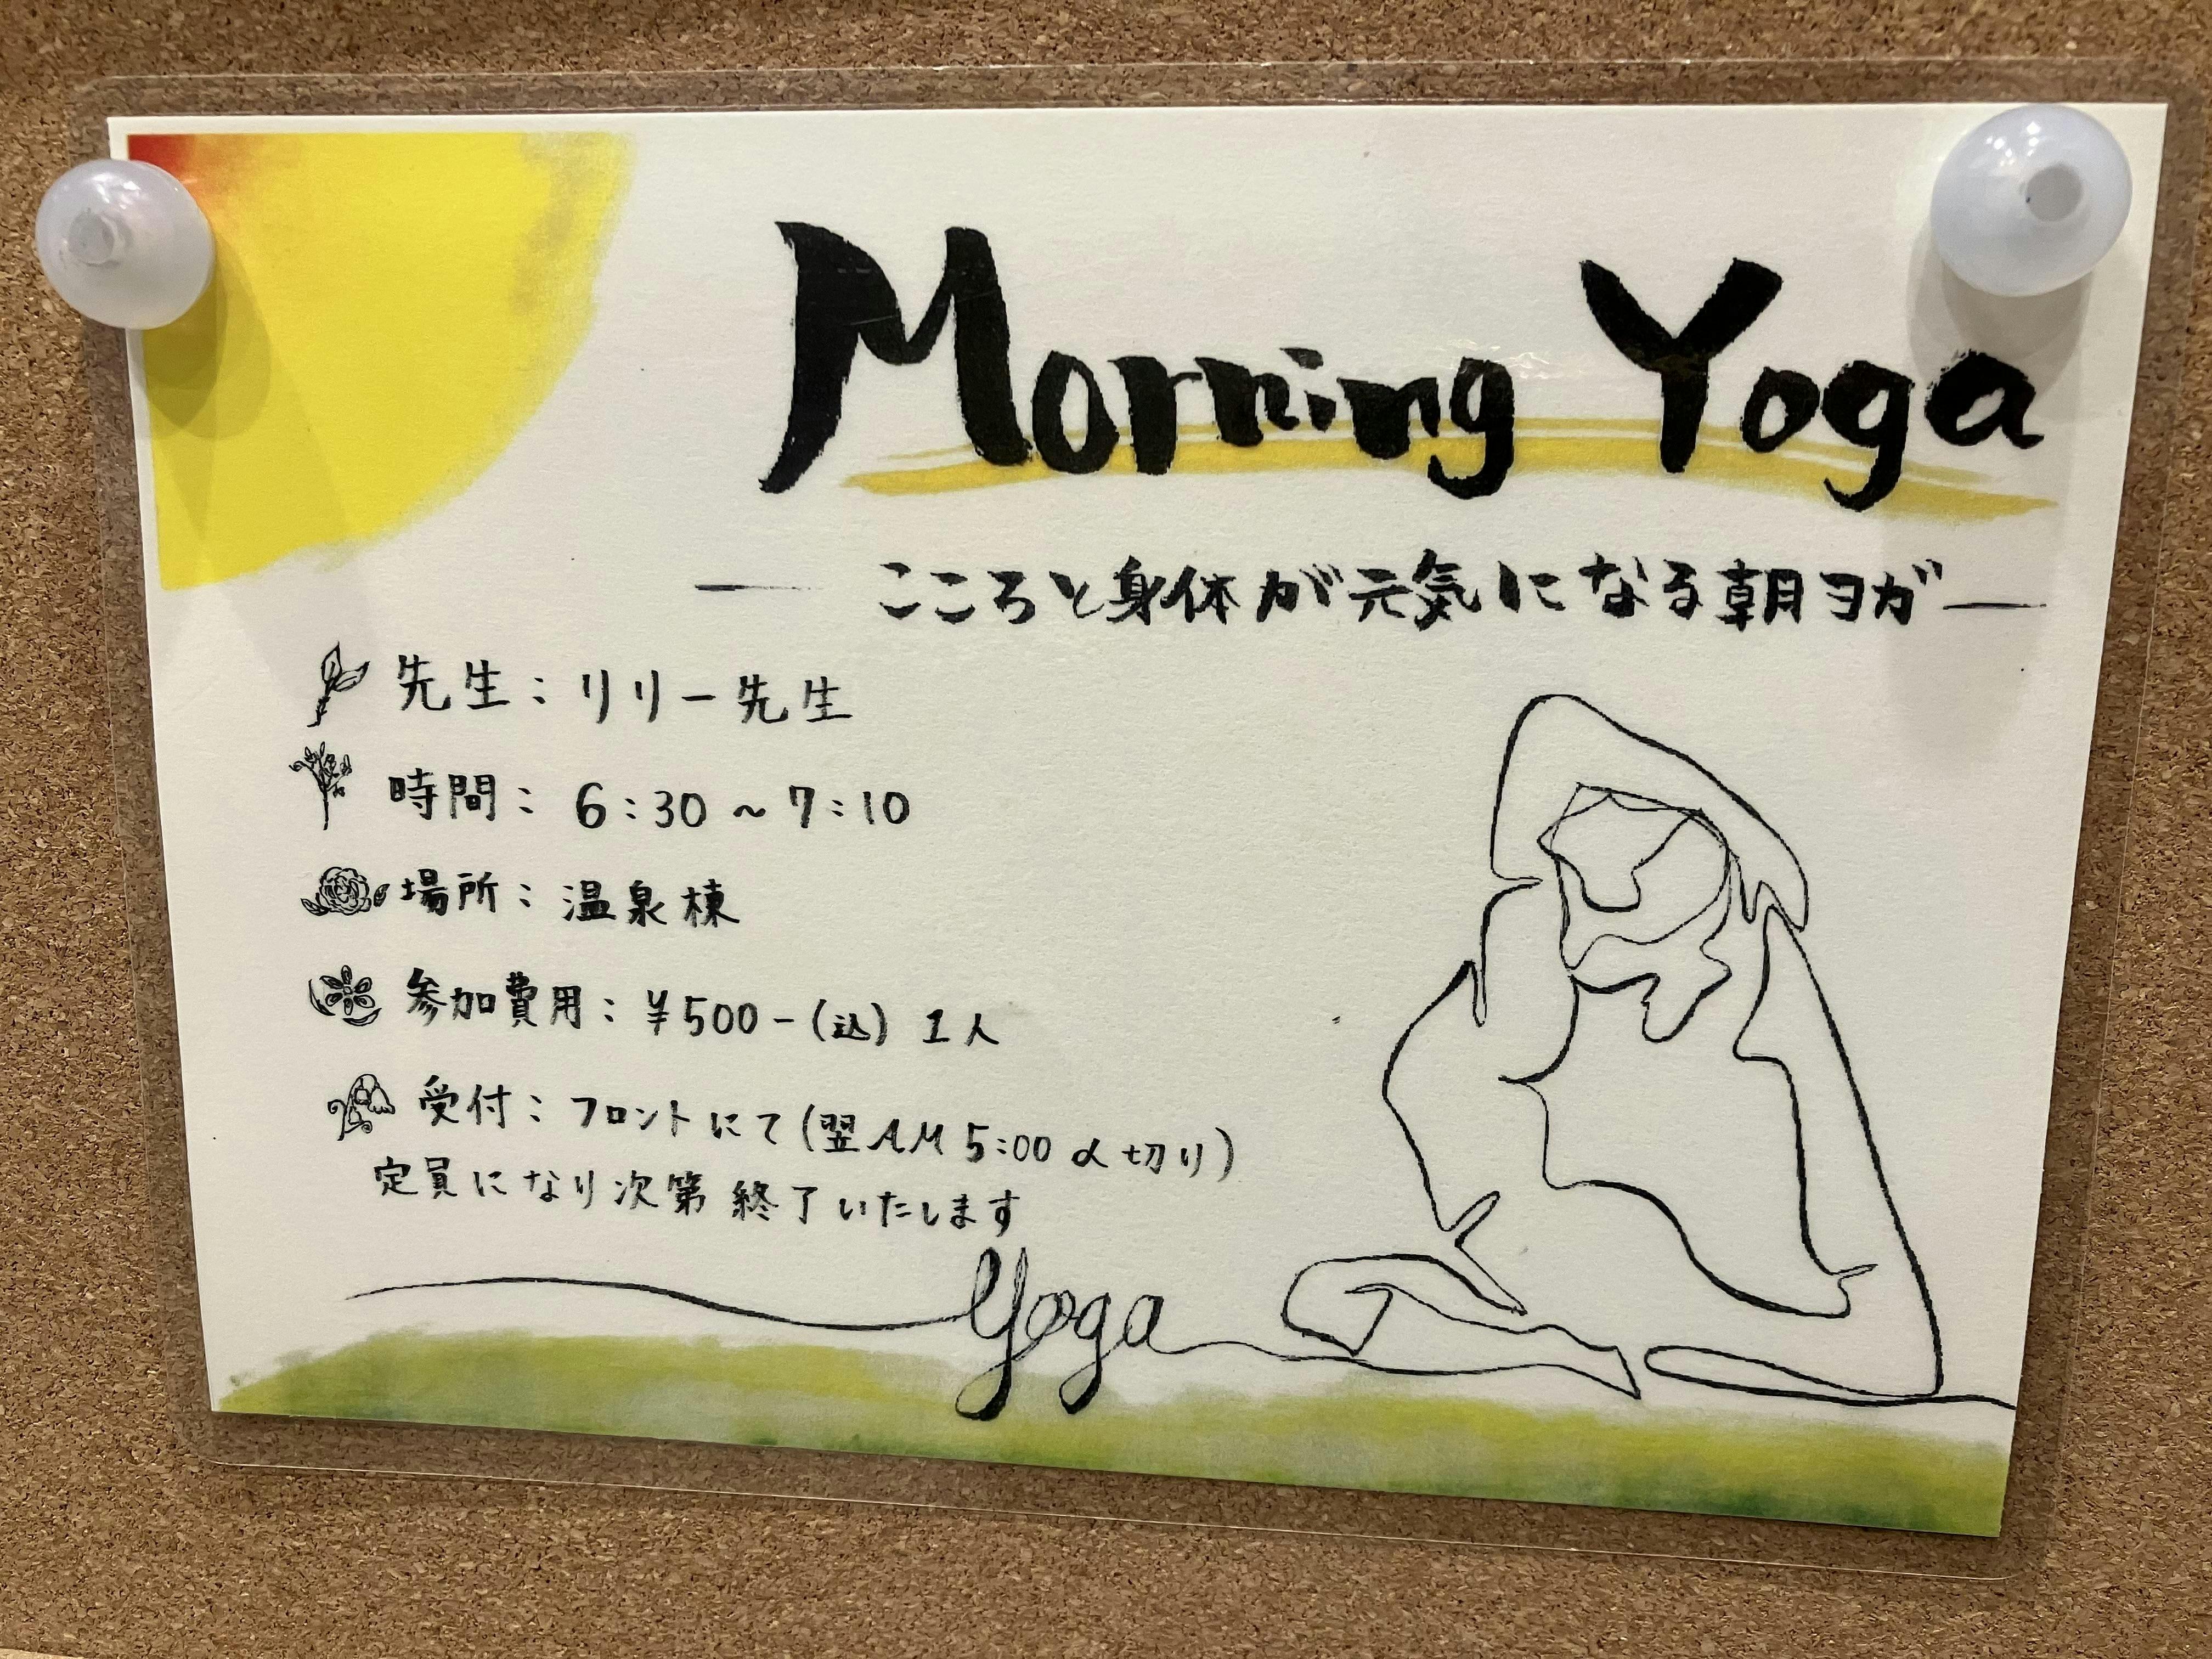 Morning Yoga
― こころと身体が元気になる朝ヨガ ―
先生：リリー先生
時間：6:30～7:10
場所：温泉棟
参加費用：¥500-(込) 1人
受付：フロントにて(翌AM5:00〆切り)
定員になり次第終了いたします
Yoga